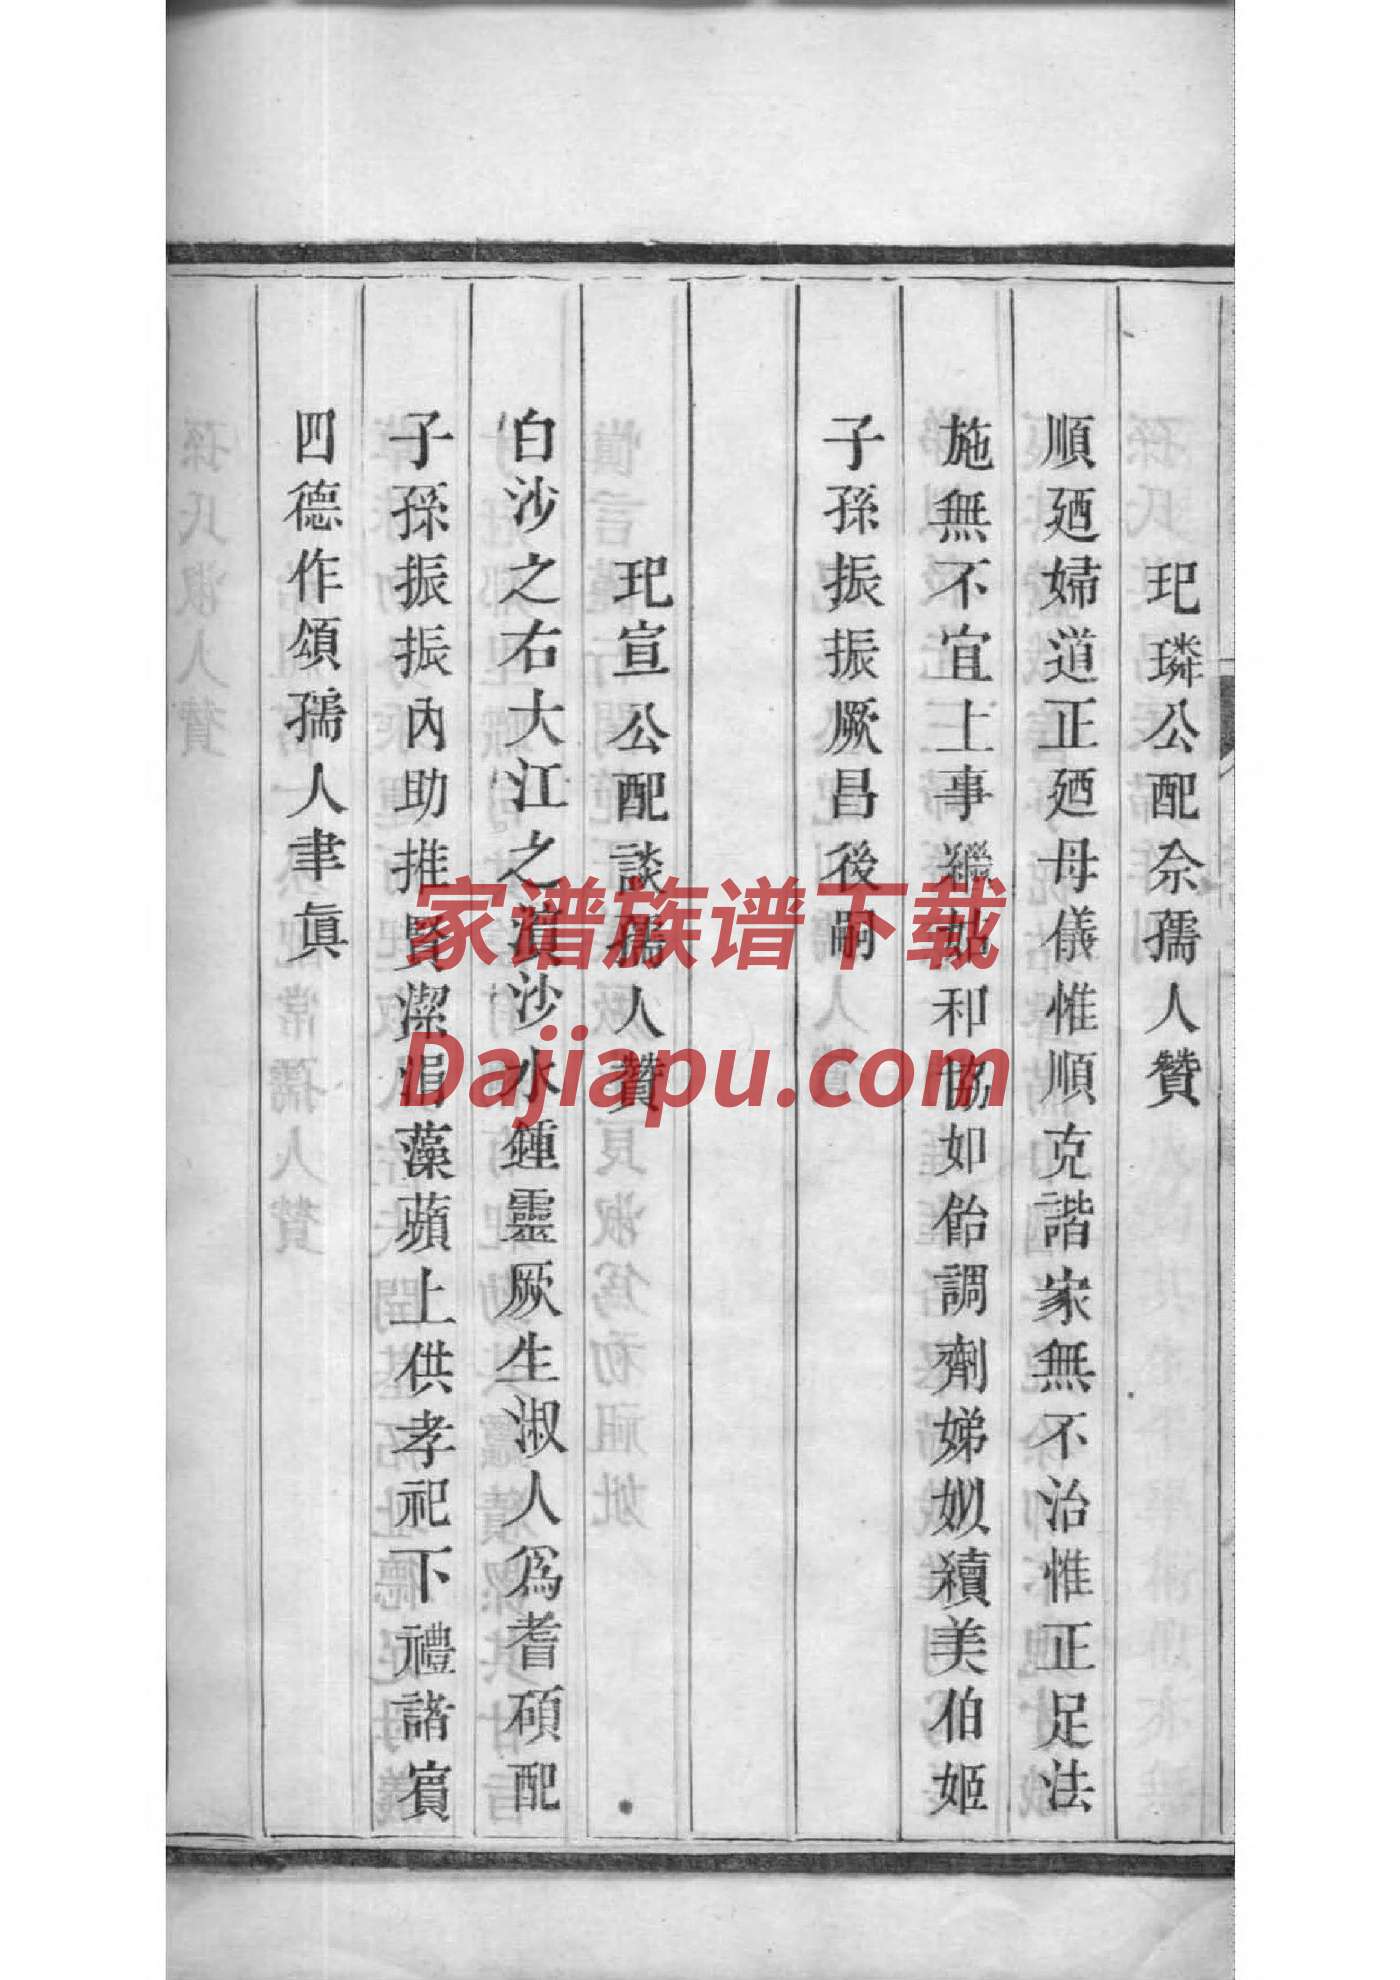 玘璘公配佘孺人贊
順廼婦道正廼母儀惟順克諧家無不治惟正足法
施無不宜上事繼姑和協如飴調劑娣姒續美伯姬
子孫振振厥昌後嗣
玘宣公配談孺人贊
白沙之右大江之濆沙水鍾靈厥生淑人爲耆碩配
子孫振振內助推賢潔涓藻蘋上供孝祀下禮諸賓
四德作頌孺人聿眞
家谱族谱下载
Dajiapu.com